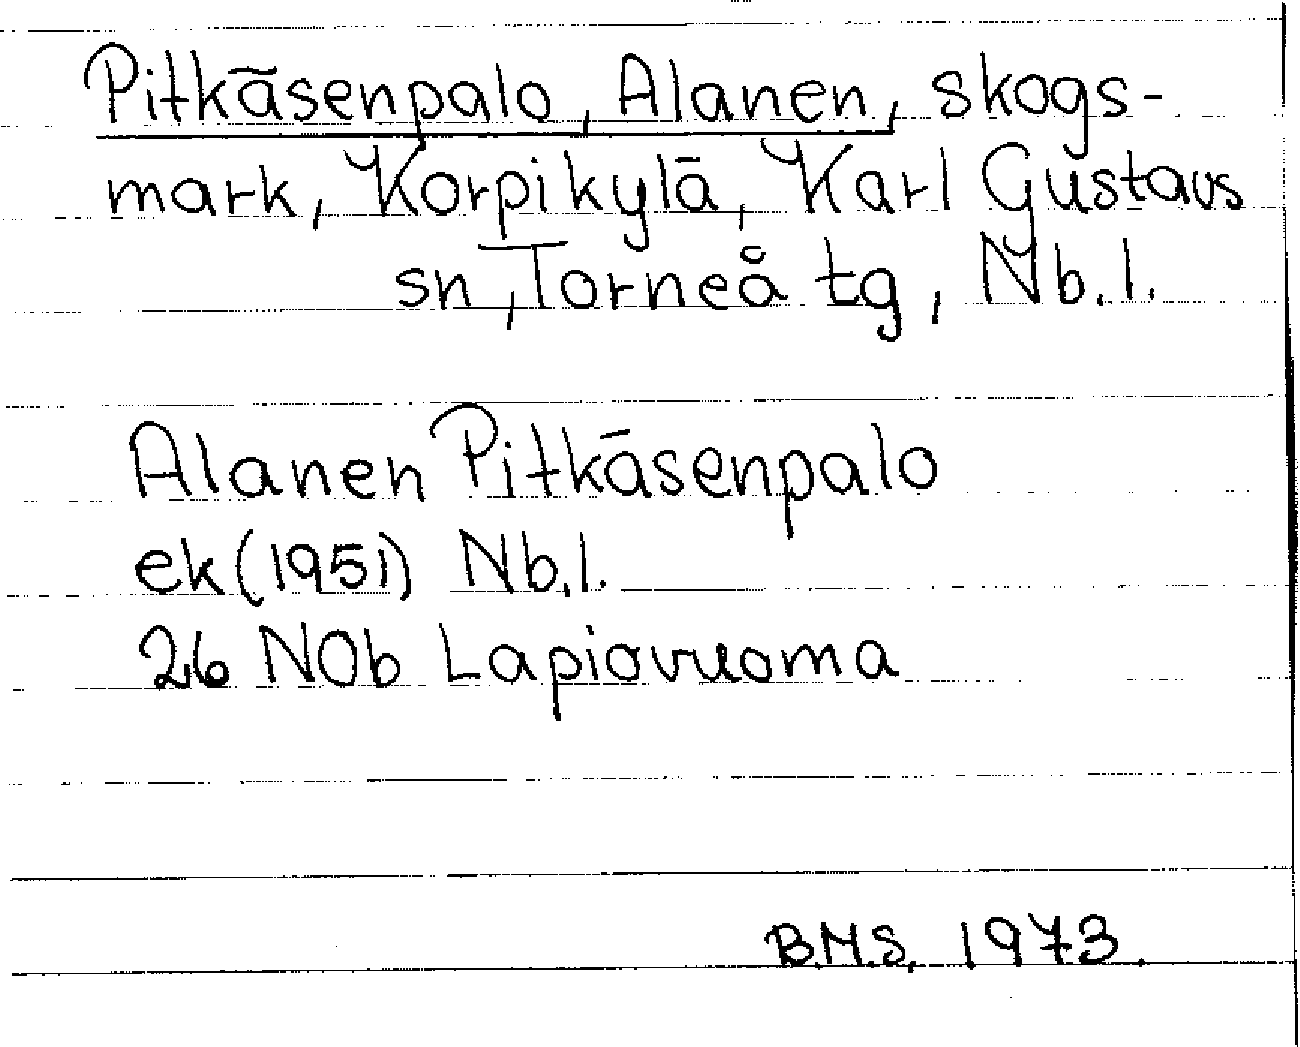 Pitkäsenpalo, Alanen, skogs-
mark, Korpikylä, Karl Gustavs
sn, Torneå tg, Nb. l.
Alanen Pitkäsenpalo
ek (1951) Nb. l.
26 NOb Lapiovuoma
B.M.S. 1973.